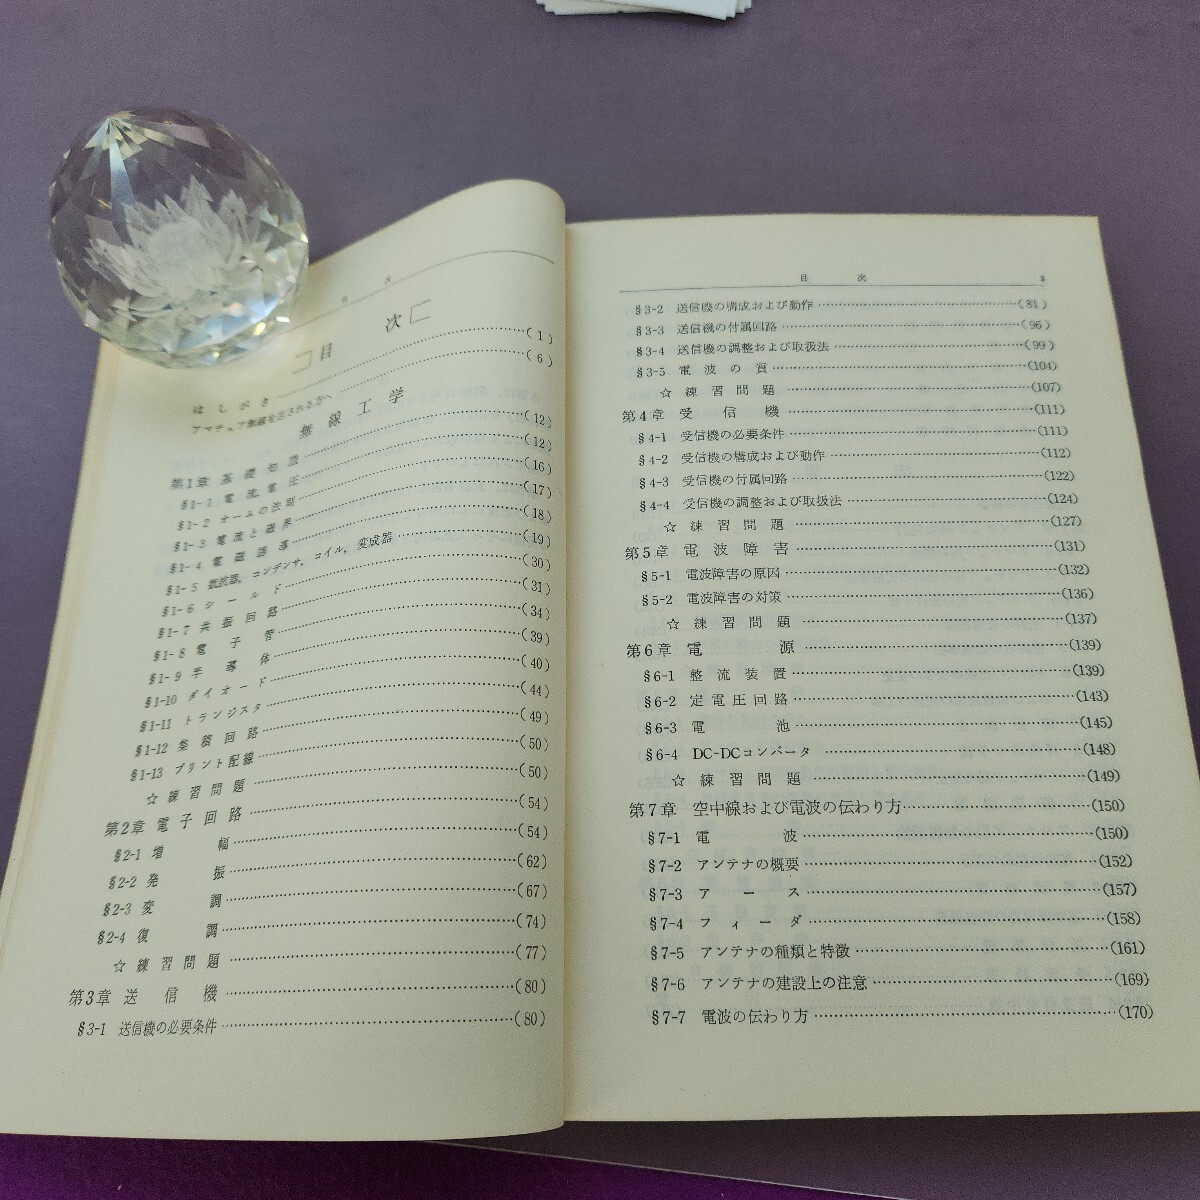 目 次
はしがき……(1)
アマチュア無線を志される方へ……(6)
無線工学
第1章 基礎知識……(12)
§1-1 電流,電圧……(12)
§1-2 オームの法則……(16)
§1-3 電流と磁界……(17)
§1-4 電磁誘導……(18)
§1-5 抵抗器,コンデンサ,コイル,変成器……(19)
§1-6 シールド……(30)
§1-7 共振回路……(31)
§1-8 電子管……(34)
§1-9 半導体……(39)
§1-10 ダイオード……(40)
§1-11 トランジスタ……(44)
§1-12 集積回路……(49)
§1-13 プリント配線……(50)
☆練習問題……(50)
第2章 電子回路……(54)
§2-1 増幅……(54)
§2-2 発振……(62)
§2-3 変調……(67)
§2-4 復調……(74)
☆練習問題……(77)
第3章 送信機……(80)
§3-1 送信機の必要条件……(80)
目 次
§3-2 送信機の構成および動作……(81)
§3-3 送信機の付属回路……(96)
§3-4 送信機の調整および取扱法……(99)
§3-5 電波の質……(104)
☆練習問題……(107)
第4章 受信機……(111)
§4-1 受信機の必要条件……(111)
§4-2 受信機の構成および動作……(112)
§4-3 受信機の付属回路……(122)
§4-4 受信機の調整および取扱法……(124)
☆練習問題……(127)
第5章 電波障害……(131)
§5-1 電波障害の原因……(132)
§5-2 電波障害の対策……(136)
☆練習問題……(137)
第6章 電源……(139)
§6-1 整流装置……(139)
§6-2 定電圧回路……(143)
§6-3 電池……(145)
§6-4 DC-DCコンバータ……(148)
☆練習問題……(149)
第7章 空中線および電波の伝わり方……(150)
§7-1 電波……(150)
§7-2 アンテナの概要……(152)
§7-3 アース……(157)
§7-4 フィーダ……(158)
§7-5 アンテナの種類と特徴……(161)
§7-6 アンテナの建設上の注意……(169)
§7-7 電波の伝わり方……(170)